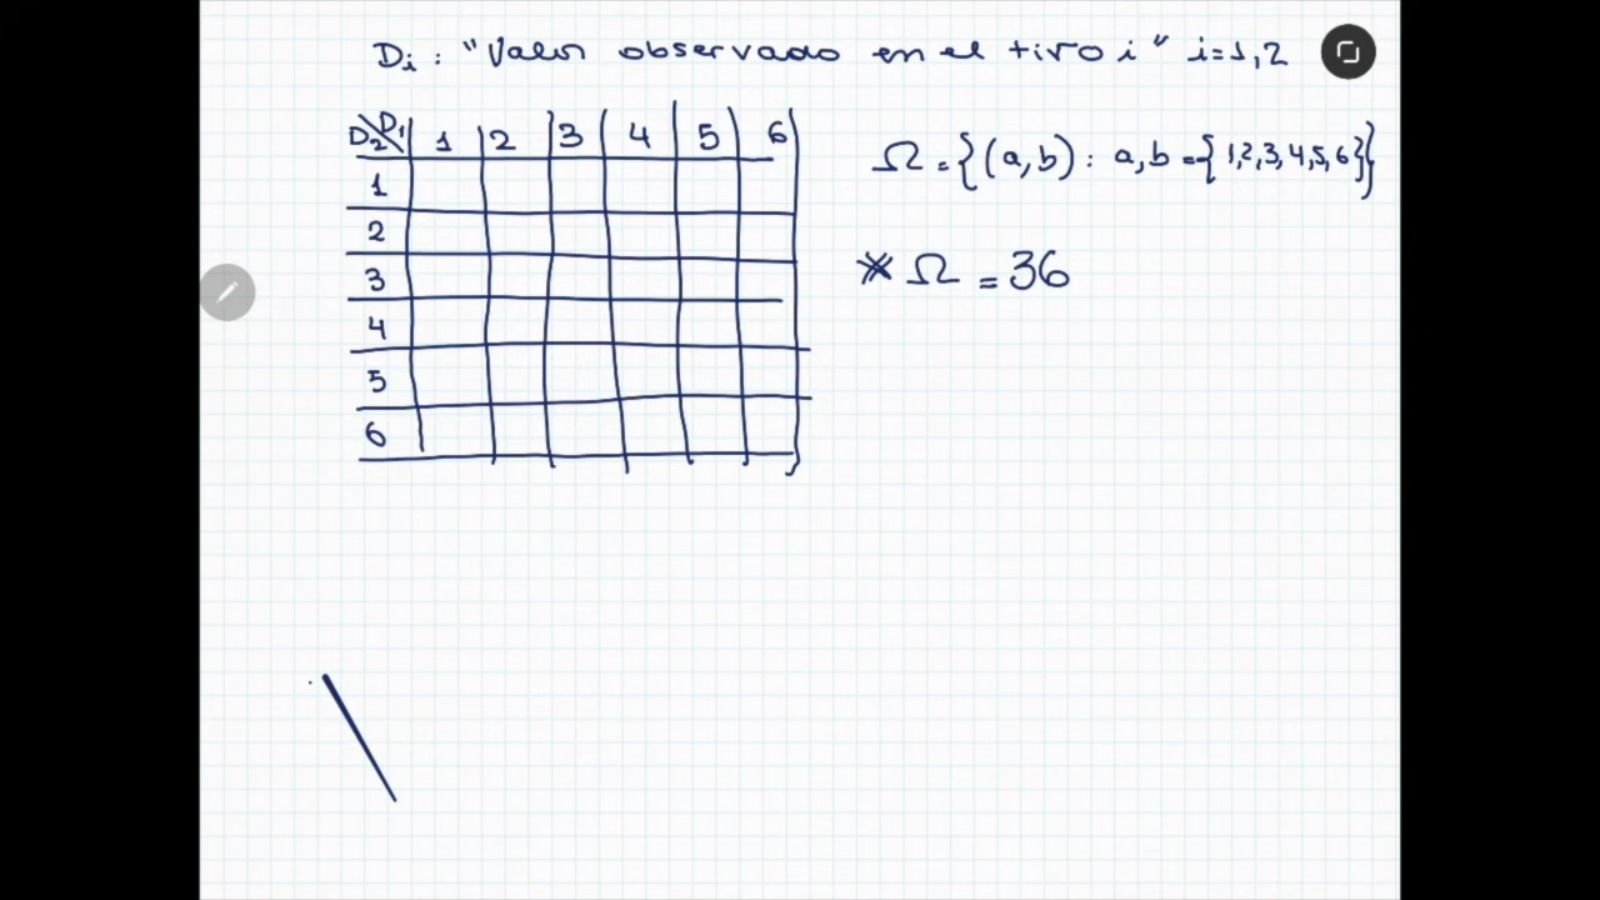 Di : "Valor observado en el tiro i" i=1,2
D2\D1 1 2 3 4 5 6
1
2
3
4
5
6
Ω = {(a,b) : a,b = {1,2,3,4,5,6}}
* Ω = 36